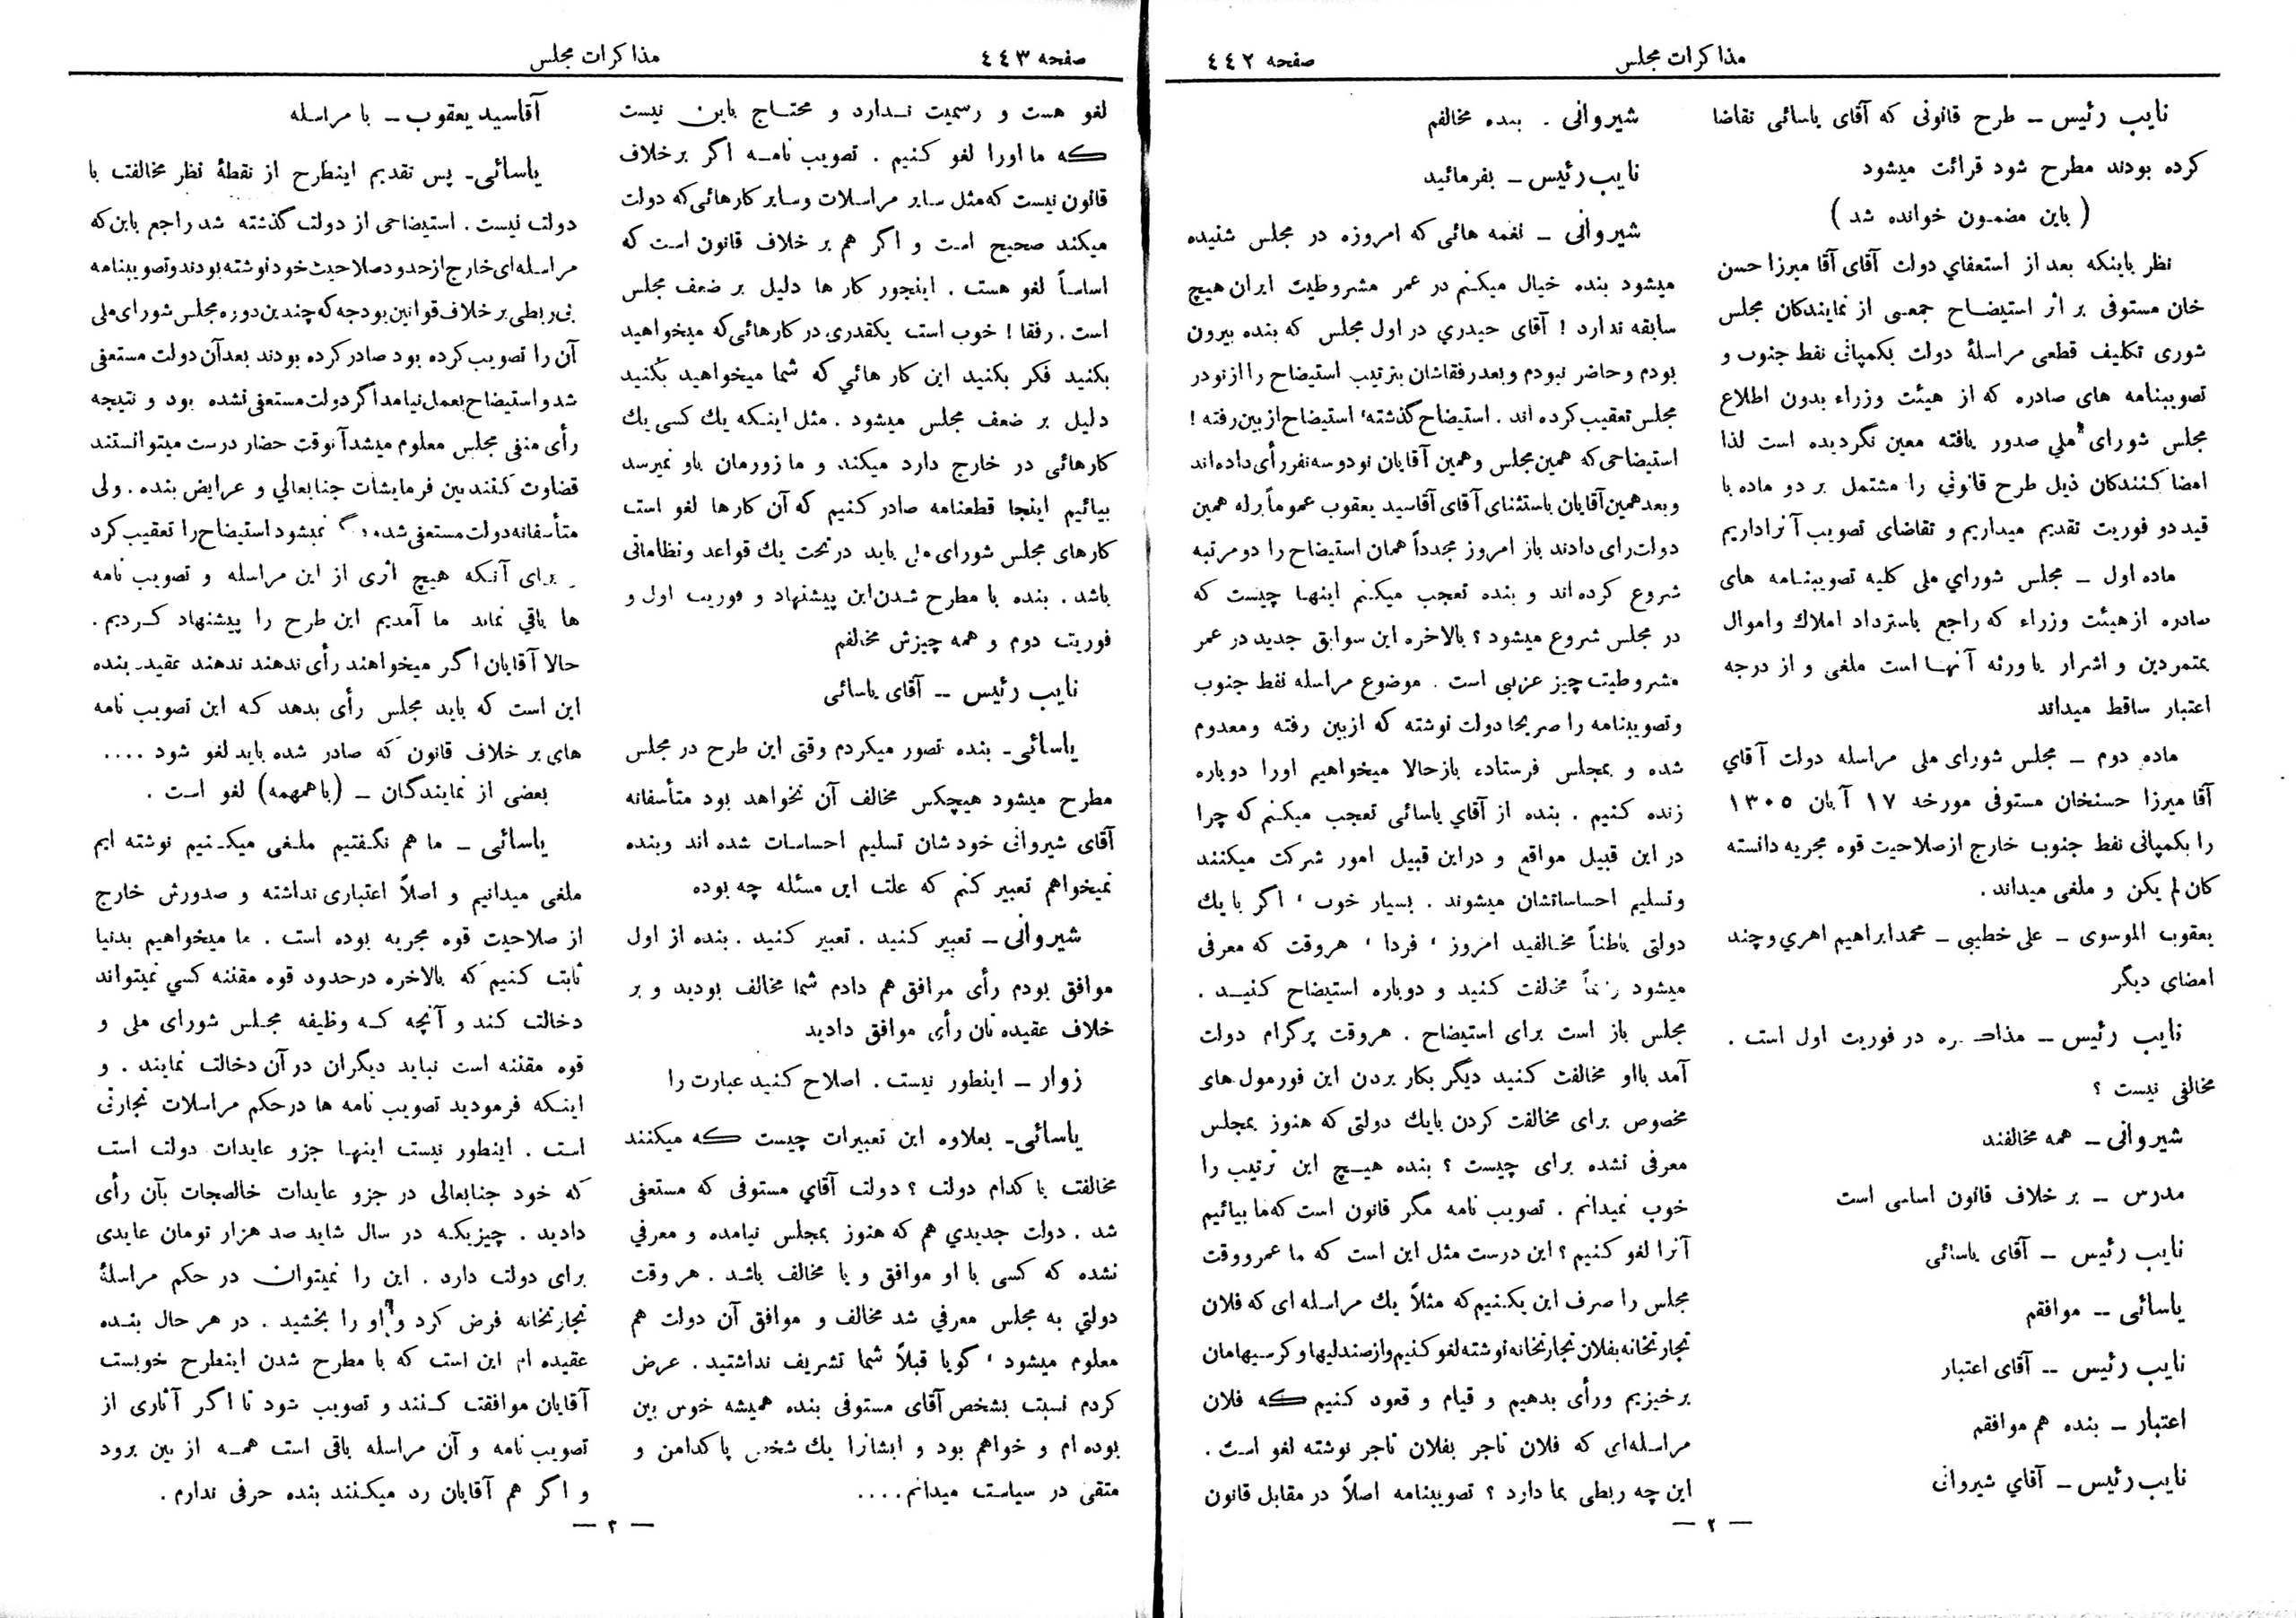 مذاکرات مجلس
صفحه ٤٤٢
نایب رئیس ـ طرح قانونی که آقای یاسائی تقاضا
کرده بودند مطرح شود قرائت میشود
( باین مضمون خوانده شد )
نظر باینکه بعد از استعفاي دولت آقای آقا میرزا حسن
خان مستوفی بر اثر استیضاح جمعی از نمایندکان مجلس
شوری تکلیف قطعی مراسلهٔ دولت بکمپانی نفط جنوب و
تصویبنامه های صادره که از هیئت وزراء بدون اطلاع
مجلس شورای ملی صدور یافته معین نگردیده است لذا
امضا کنندکان ذیل طرح قانونی را مشتمل بر دو ماده با
قید دو فوریت تقدیم میداریم و تقاضای تصویب آنراداریم
ماده اول ـ مجلس شوراي ملی کلیه تصویبنامه های
صادره از هیئت وزراء که راجع باسترداد املاك واموال
بمتمردین و اشرار یا ورثه آنها است ملغی و از درجه
اعتبار ساقط میداند
ماده دوم ـ مجلس شورای ملی مراسله دولت آقاي
آقا میرزا حسنخان مستوفی مورخه ١٧ آبان ١٣٠٥
را بکمپانی نفط جنوب خارج از صلاحیت قوه مجریه دانسته
کان لم یکن و ملغی میداند.
یعقوب الموسوی ـ علی خطیبی ـ محمدابراهیم اهري و چند
امضای دیگر
نایب رئیس ـ مذاکره در فوریت اول است .
مخالفی نیست ؟
شیروانی ـ همه مخالفند
مدرس ـ بر خلاف قانون اساسی است
نایب رئیس ـ آقای یاسائی
یاسائی ـ موافقم
نایب رئیس ـ آقای اعتبار
اعتبار ـ بنده هم موافقم
نایب رئیس ـ آقاي شیروانی
شیروانی . بنده مخالفم
نایب رئیس ـ بفرمائید
شیروانی ـ نغمه هائی که امروزه در مجلس شنیده
میشود بنده خیال میکنم در عمر مشروطیت ایران هیچ
سابقه ندارد ! آقای حیدري در اول مجلس که بنده بیرون
بودم و حاضر نبودم و بعد رفقاشان بترتیب استیضاح را از نو در
مجلس تعقیب کرده اند . استیضاح گذشته، استیضاح از بین رفته !
استیضاحی که همین مجلس و همین آقایان نود و سه نفر رأی داده اند
و بعد همین آقایان باستثنای آقای آقاسید یعقوب عموماً بر له همین
دولت رای دادند باز امروز مجدداً همان استیضاح را دو مرتبه
شروع کرده اند و بنده تعجب میکنم اینها چیست که
در مجلس شروع میشود ؟ بالاخره این سوابق جدید در عمر
مشروطیت چیز عزیبی است . موضوع مراسله نفط جنوب
و تصویبنامه را صریحا دولت نوشته که از بین رفته و معدوم
شده و بمجلس فرستاده باز حالا میخواهیم اورا دوباره
زنده کنیم . بنده از آقاي یاسائی تعجب میکنم که چرا
در این قبیل مواقع و دراین قبیل امور شرکت میکنند
و تسلیم احساساتشان میشوند . بسیار خوب ، اگر با یك
دولتی باطناً مخالفید امروز ، فردا ، هروقت که معرفی
میشود مخالفت کنید و دوباره استیضاح کنید .
مجلس باز است برای استیضاح . هروقت پرگرام دولت
آمد بااو مخالفت کنید دیگر بکار بردن این فورمول های
مخصوص برای مخالفت کردن بایك دولتی که هنوز بمجلس
معرفی نشده برای چیست ؟ بنده هیچ این ترتیب را
خوب نمیدانم . تصویب نامه مگر قانون است که ما بیائیم
آنرا لغو کنیم ؟ این درست مثل این است که ما عمر و وقت
مجلس را صرف این بکنیم که مثلاً یك مراسله ای که فلان
تجارتخانه بفلان تجارتخانه نوشته لغو کنیم و از صندلیها و کرسیهامان
برخیزیم ورأی بدهیم و قیام و قعود کنیم که فلان
مراسله‌ای که فلان تاجر بفلان تاجر نوشته لغو است .
این چه ربطی بما دارد ؟ تصویبنامه اصلاً در مقابل قانون
— ٢ —
صفحه ٤٤٣
مذاکرات مجلس
لغو هست و رسمیت ندارد و محتاج باین نیست
که ما اورا لغو کنیم . تصویب نامه اگر بر خلاف
قانون نیست که مثل سایر مراسلات و سایر کارهائی که دولت
میکند صحیح است و اگر هم بر خلاف قانون است که
اساساً لغو هست . اینجور کار ها دلیل بر ضعف مجلس
است . رفقا ! خوب است یکقدری در کارهائی که میخواهید
بکنید فکر بکنید این کار هائي که شما میخواهید بکنید
دلیل بر ضعف مجلس میشود . مثل اینکه یك کسی یك
کارهائی در خارج دارد میکند و ما زورمان باو نمیرسد
بیائیم اینجا قطعنامه صادر کنیم که آن کارها لغو است
کارهای مجلس شورای ملی باید در تحت یك قواعد و نظاماتی
باشد . بنده با مطرح شدن این پیشنهاد و فوریت اول و
فوریت دوم و همه چیزش مخالفم
نایب رئیس ـ آقای یاسائی
یاسائی ـ بنده تصور میکردم وقتی این طرح در مجلس
مطرح میشود هیچکس مخالف آن نخواهد بود متأسفانه
آقای شیروانی خودشان تسلیم احساسات شده اند و بنده
نمیخواهم تعبیر کنم که علت این مسئله چه بوده
شیروانی ـ تعبیر کنید . تعبیر کنید . بنده از اول
موافق بودم رأی موافق هم دادم شما مخالف بودید و بر
خلاف عقیده تان رأی موافق دادید
زوار ـ اینطور نیست . اصلاح کنید عبارت را
یاسائی ـ بعلاوه این تعبیرات چیست که میکنند
مخالفت با کدام دولت ؟ دولت آقاي مستوفی که مستعفی
شد . دولت جدیدي هم که هنوز بمجلس نیامده و معرفي
نشده که کسی با او موافق و یا مخالف باشد . هر وقت
دولتي به مجلس معرفي شد مخالف و موافق آن دولت هم
معلوم میشود ، گویا قبلاً شما تشریف نداشتید . عرض
کردم نسبت بشخص آقای مستوفی بنده همیشه خوش بین
بوده ام و خواهم بود و ایشانرا یك شخص پاکدامن و
متقی در سیاست میدانم ....
آقاسید یعقوب ـ با مراسله
یاسائی ـ پس تقدیم اینطرح از نقطهٔ نظر مخالفت با
دولت نیست . استیضاحی از دولت گذشته شد راجع باین که
مراسله‌ای خارج از حدود صلاحیت خود نوشته بودند و تصویبنامه
بی ربطی بر خلاف قوانین بودجه که چندین دوره مجلس شورای ملی
آن را تصویب کرده بود صادر کرده بودند بعد آن دولت مستعفی
شد و استیضاح بعمل نیامد اگر دولت مستعفی نشده بود و نتیجه
رأی منفی مجلس معلوم میشد آنوقت حضار درست میتوانستند
قضاوت کنند بین فرمایشات جنابعالي و عرایض بنده . ولی
متأسفانه دولت مستعفی شده نمیشود استیضاح را تعقیب کرد
برای آنکه هیچ اثری از این مراسله و تصویب نامه
ها باقي نماند ما آمدیم این طرح را پیشنهاد کردیم .
حالا آقایان اگر میخواهند رأی ندهند ندهند عقیده بنده
این است که باید مجلس رأی بدهد که این تصویب نامه
های بر خلاف قانون که صادر شده باید لغو شود ....
بعضی از نمایندگان ـ (با همهمه) لغو است .
یاسائی ـ ما هم نگفتیم ملغی میکنیم نوشته ایم
ملغی میدانیم و اصلاً اعتباری نداشته و صدورش خارج
از صلاحیت قوه مجریه بوده است . ما میخواهیم بدنیا
ثابت کنیم که بالاخره درحدود قوه مقننه کسي نمیتواند
دخالت کند و آنچه که وظیفه مجلس شورای ملی و
قوه مقننه است نباید دیگران در آن دخالت نمایند . و
اینکه فرمودید تصویب نامه ها در حکم مراسلات تجارتی
است . اینطور نیست اینها جزو عایدات دولت است
که خود جنابعالی در جزو عایدات خالصجات بآن رأی
دادید . چیزیکه در سال شاید صد هزار تومان عایدی
برای دولت دارد . این را نمیتوان در حکم مراسلهٔ
تجارتخانه فرض کرد و او را بخشید . در هر حال بنده
عقیده ام این است که با مطرح شدن اینطرح خوبست
آقایان موافقت کنند و تصویب شود تا اگر آثاری از
تصویب نامه و آن مراسله باقی است همه از بین برود
و اگر هم آقایان رد میکنند بنده حرفی ندارم .
— ٣ —